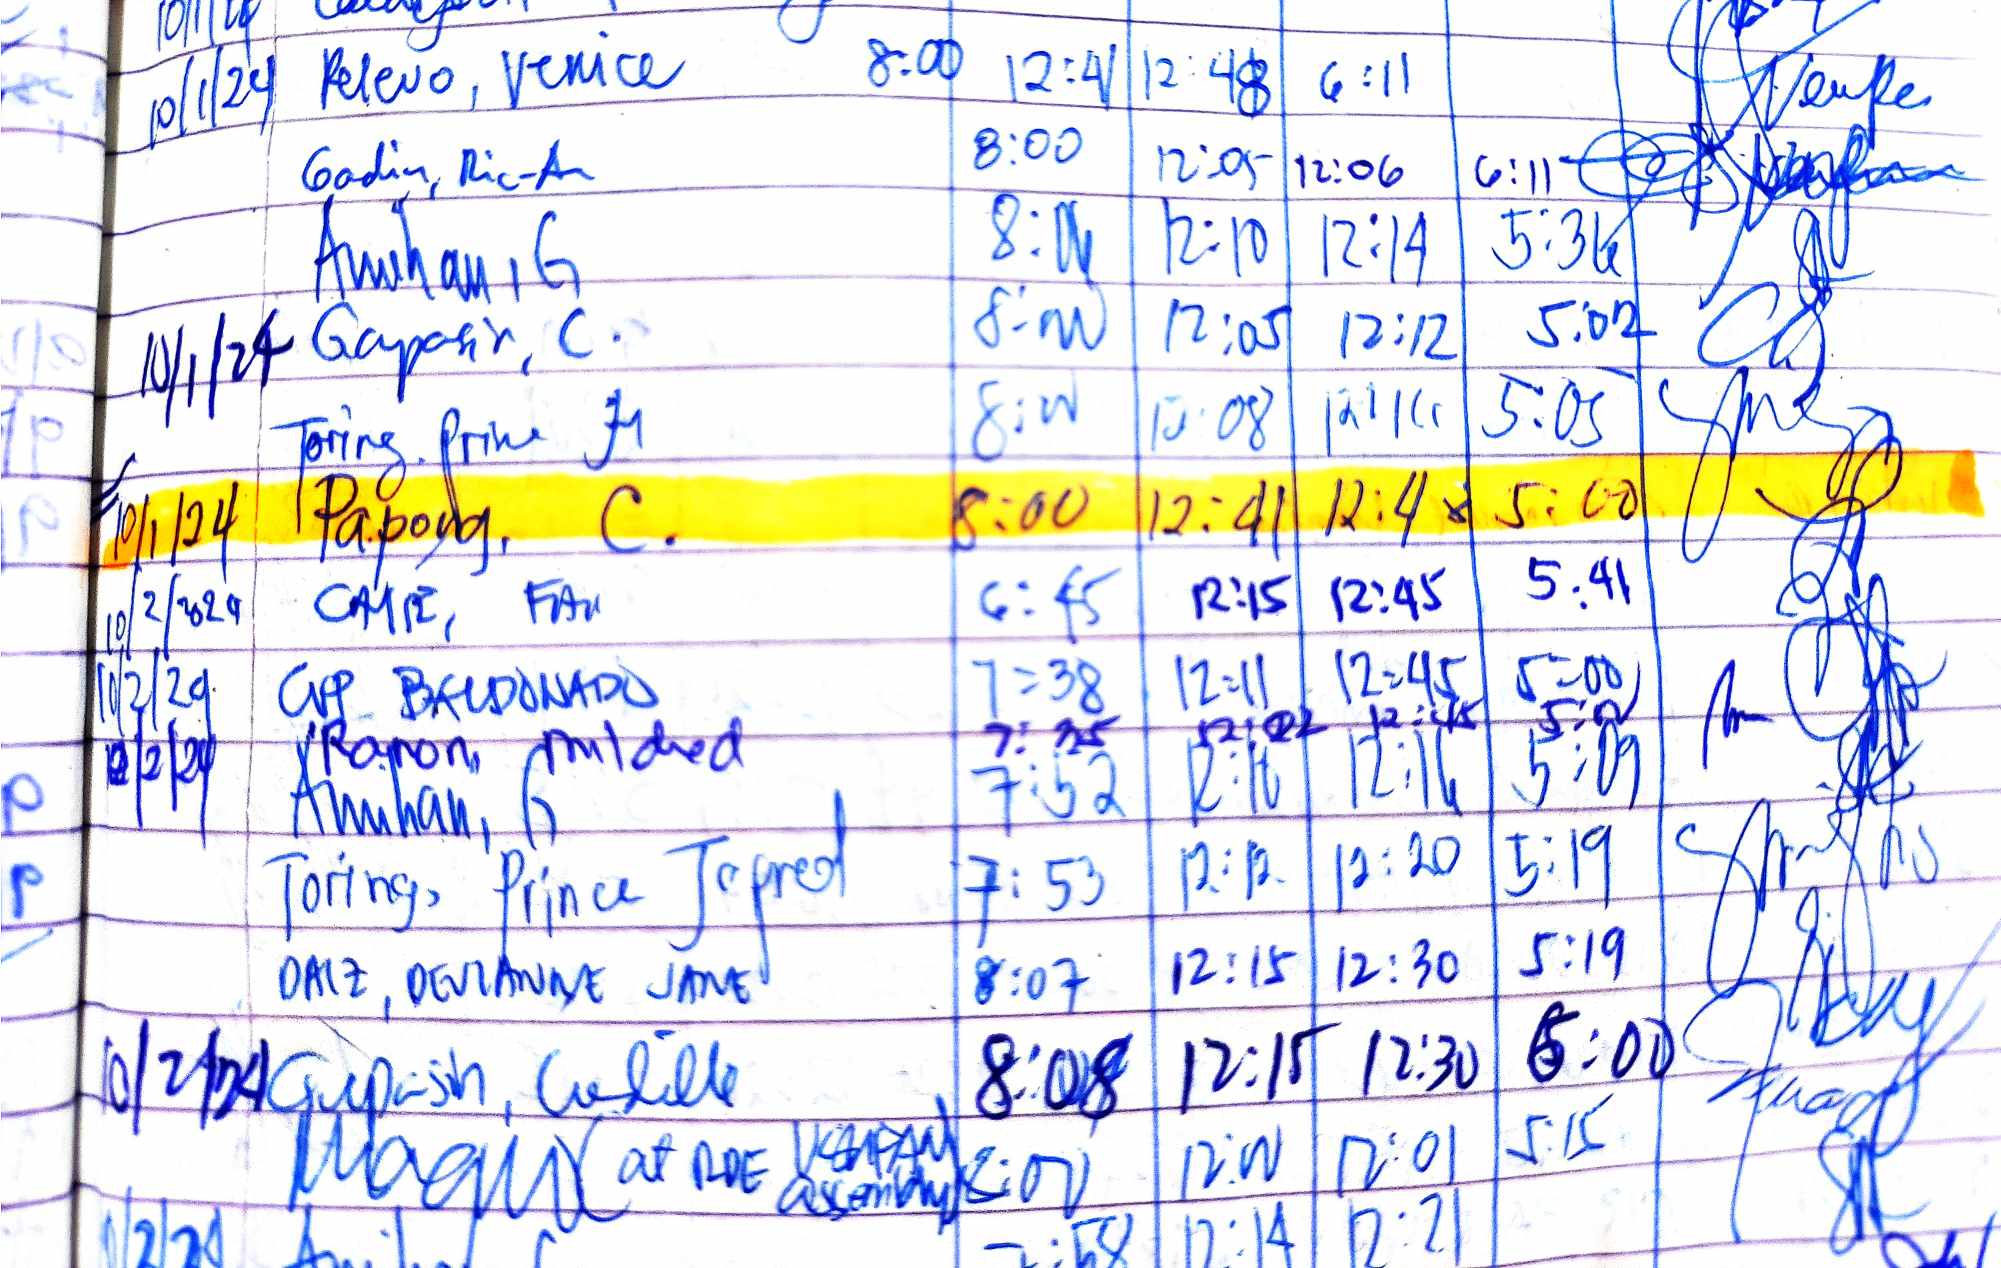 10/1/24
10/1/24 Relevo, Venice 8:00 12:41 12:48 6:11 Venice
Gadin, Ric-An 8:00 12:05 12:06 6:11
Amihan, G 8:06 12:10 12:14 5:36
10/1/24 Gaypasin, C. 8:00 12:05 12:12 5:02
Toring, Prince 8:00 12:08 5:05
10/1/24 Papong, C. 8:00 12:41 12:4 5:00
10/2/2024 6:45 12:15 12:45 5:41
10/2/24 BALDONADO 7:38 12:11 12:45 5:00
2/24 Ramon, Mildred 7:25 12:02 12:45
Amihan, G 7:52 12:16 12:16 5:09
Toring, Prince Jefred 7:53 12:12 12:20 5:19
DALZ, JANE 8:07 12:15 12:30 5:19
10/2/24 8:08 12:15 12:30 5:00
at RDE assembly 8:00 12:00 12:01 5:15
10/2/24 7:58 12:14 12:21